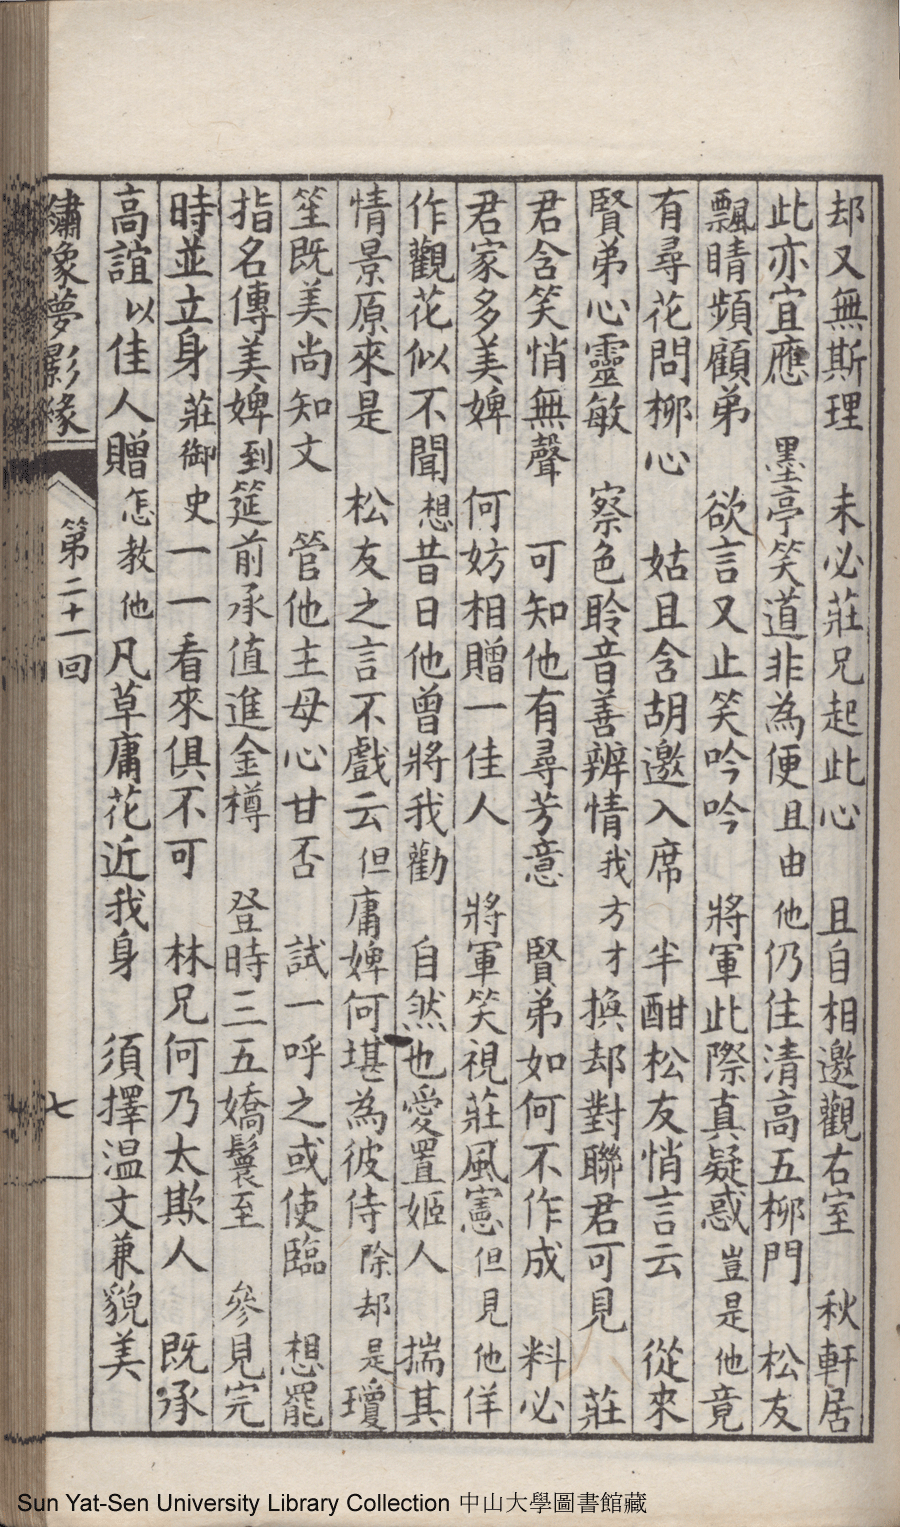 却又無斯理　未必莊兄起此心　且自相邀觀右室　秋軒居
此亦宜應　墨亭笑道非為便且由他仍住清高五柳門　松友
飄睛頻顧弟　欲言又止笑吟吟　將軍此際真疑惑豈是他竟
有尋花問柳心　姑且含胡邀入席　半酣松友悄言云　從來
賢弟心靈敏　察色聆音善辨情我方才換却對聯君可見　莊
君含笑悄無聲　可知他有尋芳意　賢弟如何不作成　料必
君家多美婢　何妨相贈一佳人　將軍笑視莊風憲但見他佯
作觀花似不聞想昔日他曾將我勸　自然也愛置姬人　揣其
情景原來是　松友之言不戲云但庸婢何堪為彼侍除却是瓊
笙既美尚知文　管他主母心甘否　試一呼之或使臨　想罷
指名傳美婢到筵前承值進金樽　登時三五嬌鬟至　參見完
時並立身莊御史一一看來俱不可　林兄何乃太欺人　既承
高誼以佳人贈怎教他凡草庸花近我身　須擇温文兼貌美
繡像夢影緣
第二十一回
七
Sun Yat-Sen University Library Collection 中山大學圖書館藏